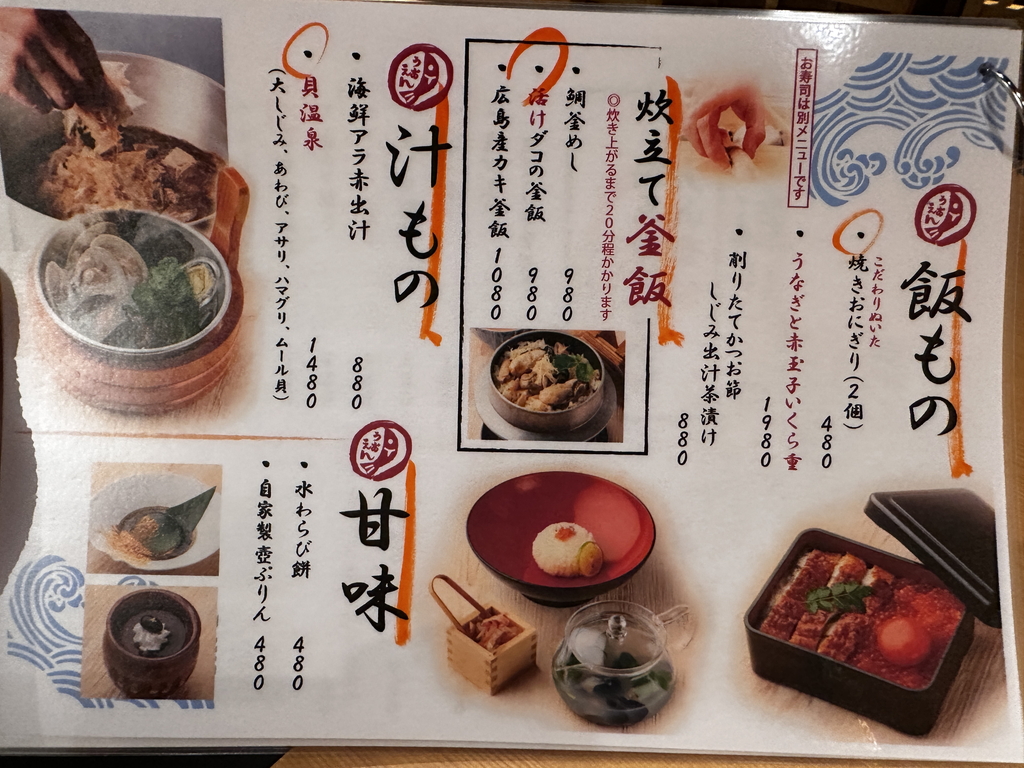 お寿司は別メニューです
うおえん
飯もの
こだわりぬいた
・焼きおにぎり（2個）
480
・うなぎと赤玉子いくら重
1980
・削りたてかつお節
しじみ出汁茶漬け
880
炊立て釜飯
◎炊き上がるまで20分程かかります
・鯛釜めし 980
・活けダコの釜飯 980
・広島産カキ釜飯 1080
うおえん
汁もの
・海鮮アラ赤出汁 880
・貝温泉
（大しじみ、あわび、アサリ、ハマグリ、ムール貝）
1480
うおえん
甘味
・水わらび餅 480
・自家製壺ぷりん 480